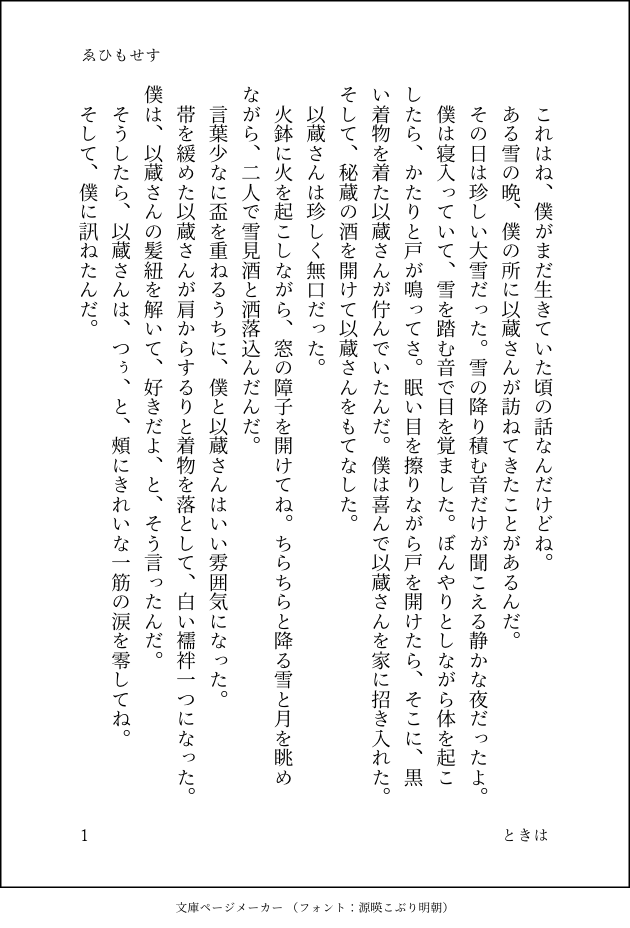 ゑひもせす
これはね、僕がまだ生きていた頃の話なんだけどね。
ある雪の晩、僕の所に以蔵さんが訪ねてきたことがあるんだ。
その日は珍しい大雪だった。雪の降り積む音だけが聞こえる静かな夜だったよ。
僕は寝入っていて、雪を踏む音で目を覚ました。ぼんやりとしながら体を起こ
したら、かたりと戸が鳴ってさ。眠い目を擦りながら戸を開けたら、そこに、黒
い着物を着た以蔵さんが佇んでいたんだ。僕は喜んで以蔵さんを家に招き入れた。
そして、秘蔵の酒を開けて以蔵さんをもてなした。
以蔵さんは珍しく無口だった。
火鉢に火を起こしながら、窓の障子を開けてね。ちらちらと降る雪と月を眺め
ながら、二人で雪見酒と洒落込んだんだ。
言葉少なに盃を重ねるうちに、僕と以蔵さんはいい雰囲気になった。
帯を緩めた以蔵さんが肩からするりと着物を落として、白い襦袢一つになった。
僕は、以蔵さんの髪紐を解いて、好きだよ、と、そう言ったんだ。
そうしたら、以蔵さんは、つぅ、と、頬にきれいな一筋の涙を零してね。
そして、僕に訊ねたんだ。
1
ときは
文庫ページメーカー（フォント：源暎こぶり明朝）